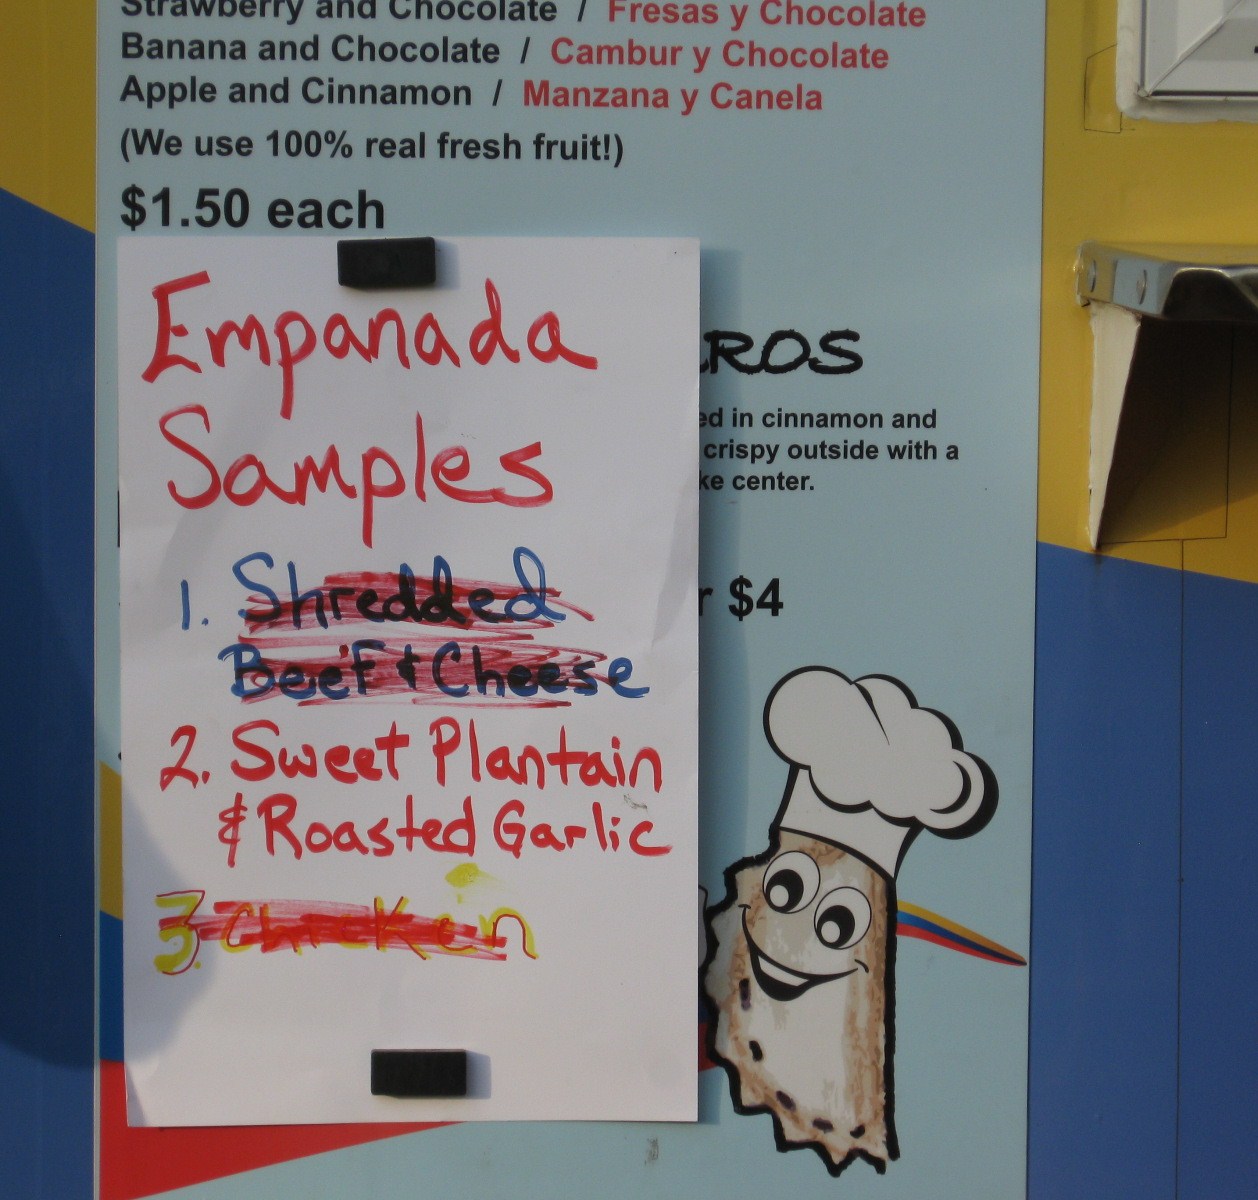 Strawberry and Chocolate / Fresas y Chocolate
Banana and Chocolate / Cambur y Chocolate
Apple and Cinnamon / Manzana y Canela
(We use 100% real fresh fruit!)
$1.50 each
Empanada
Samples
1. Shredded
Beef & Cheese
2. Sweet Plantain
& Roasted Garlic
3. Chicken
ROS
ed in cinnamon and
crispy outside with a
ke center.
r $4